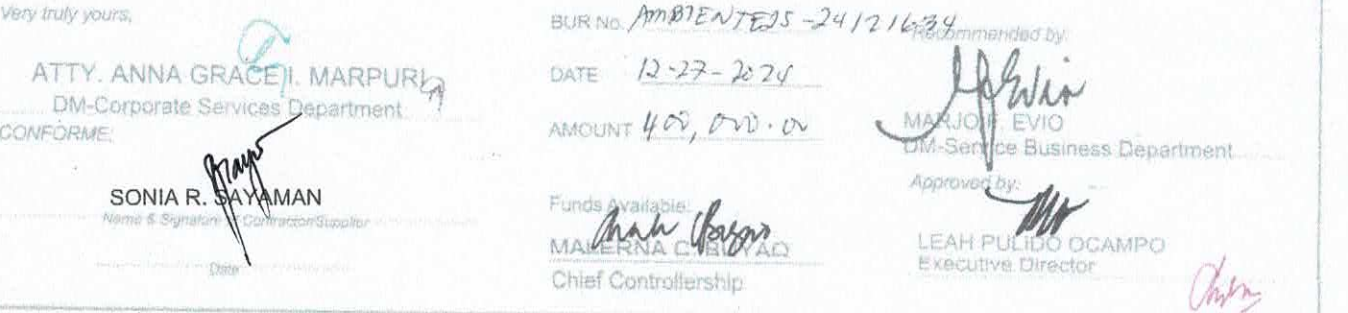 Very truly yours,
ATTY. ANNA GRACE I. MARPURI
DM-Corporate Services Department
CONFORME:
SONIA R. SAYAMAN
Name & Signature of Contractor/Supplier
Date
BUR No. AMBIENTE25-24121634
DATE 12-27-2024
AMOUNT 400,000.00
Funds Available:
MALERNA C. BUYAO
Chief Controllership
Recommended by:
MARJO F. EVIO
DM-Service Business Department
Approved by:
LEAH PULIDO OCAMPO
Executive Director